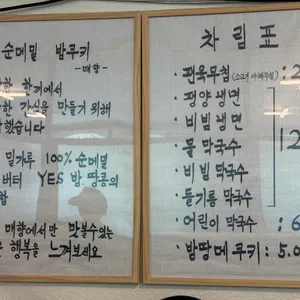 순메밀 밤쿠키
-매향-
한 한끼에서
한 간식을 만들기 위해
했습니다
밀가루 100% 순메밀
버터 YES 밤·땅콩의
함
매향에서만 맛볼수있는
행복을 느껴보세요
차림표
·편육무침 (소고기 아롱사태) : 2
·평양 냉면
·비빔 냉면
·물 막국수
·비빔 막국수
·들기름 막국수
2
·어린이 막국수 : 6
·밤땅메쿠키 : 5.0